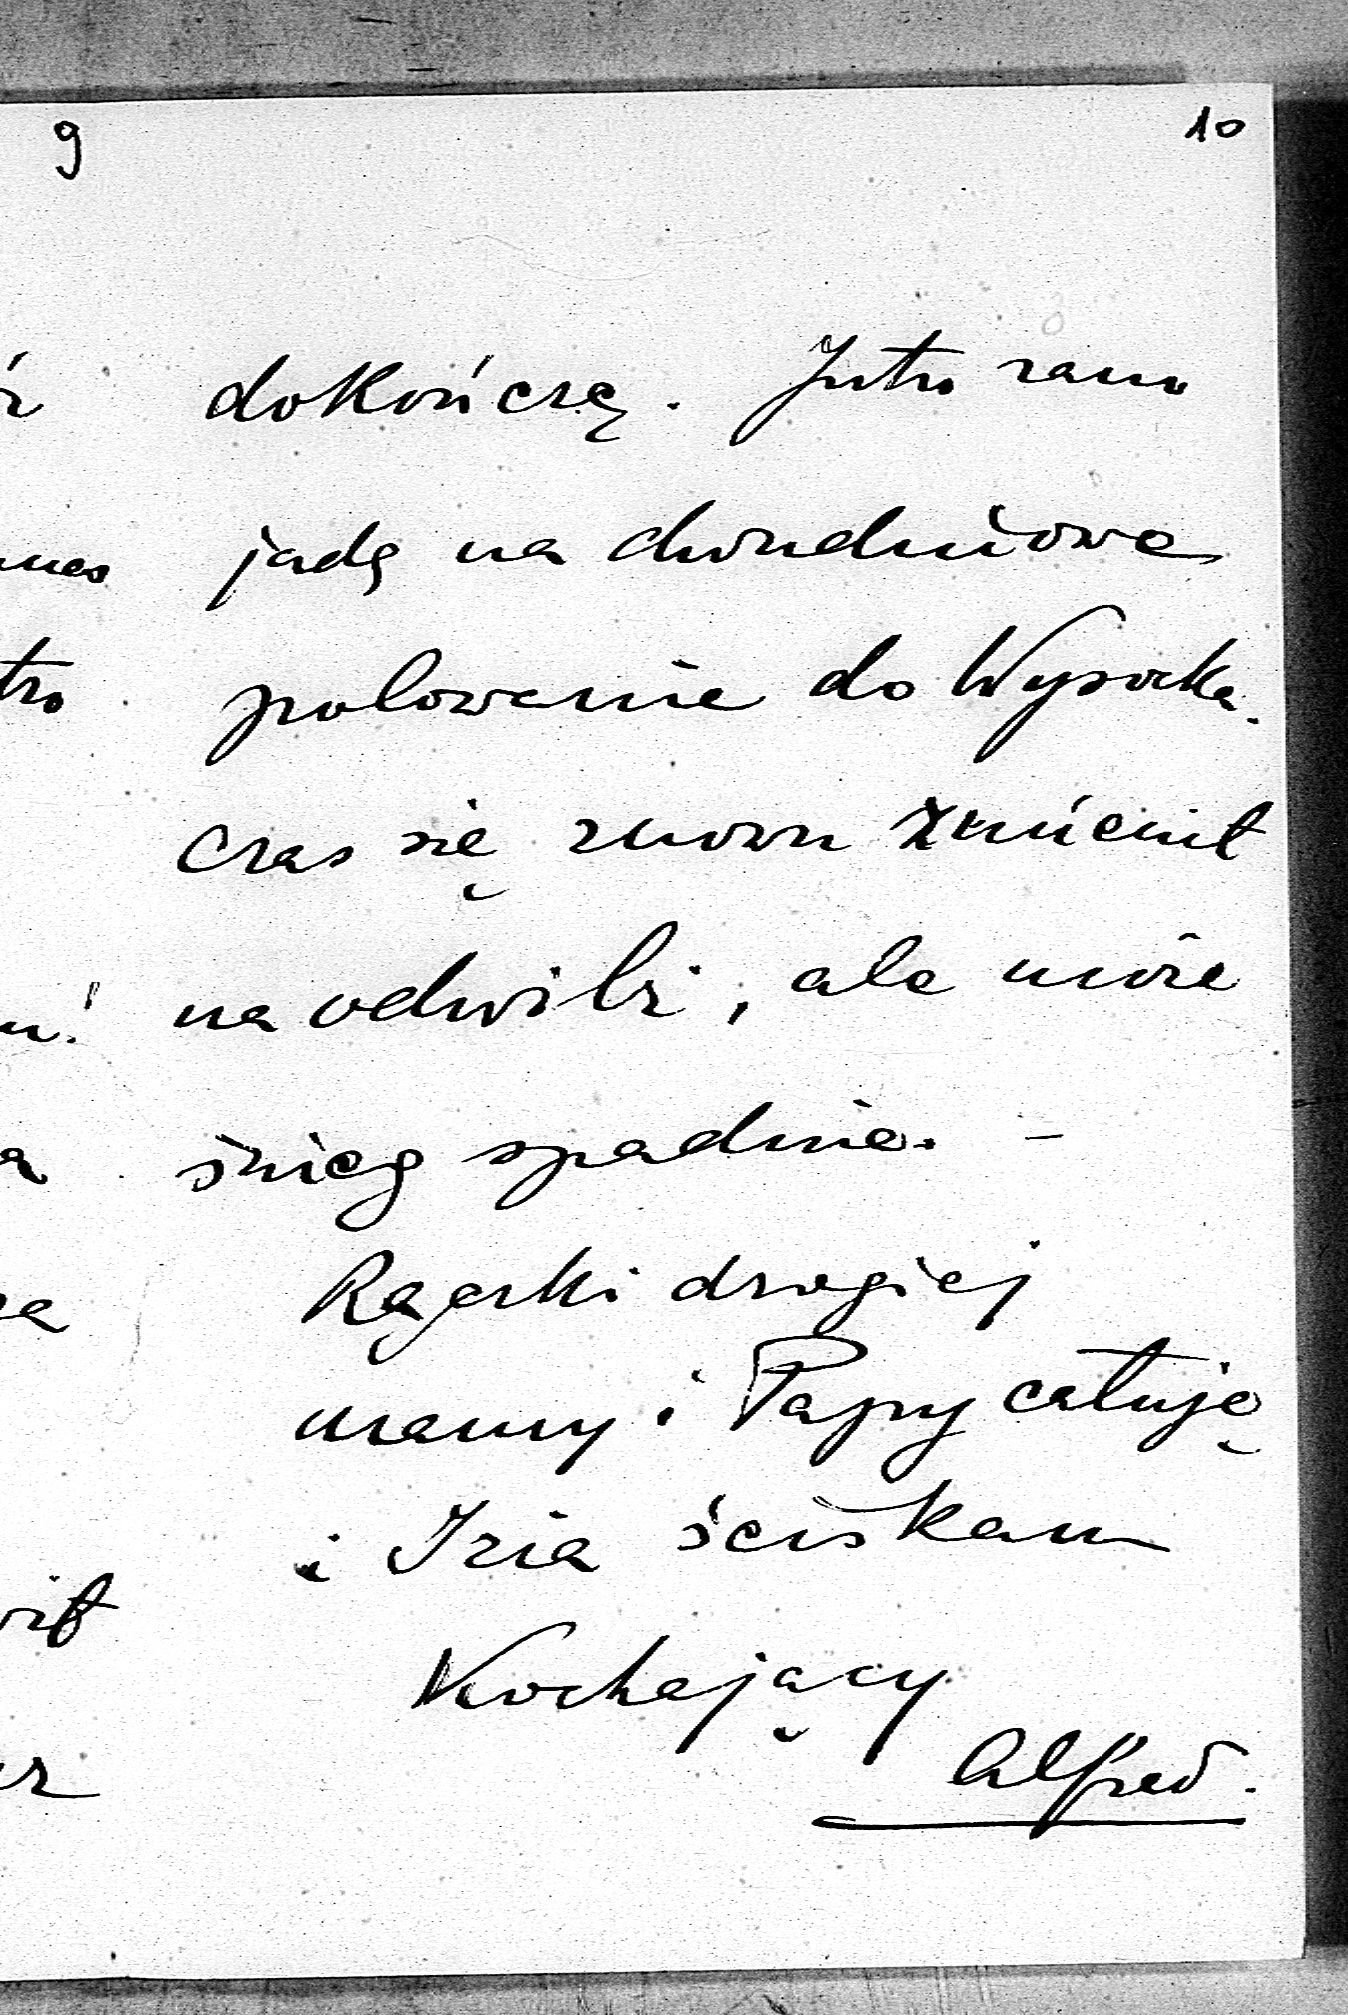 9
10
dokończę. Jutro rano
jadę na dwudniowe
polowanie do Wysocka.
Czas się znowu zmienił
na odwilż, ale może
śnieg spadnie. –
Rączki drogiej
mamy i Papy całuję
i Izia ściskam
Kochający
Alfred.